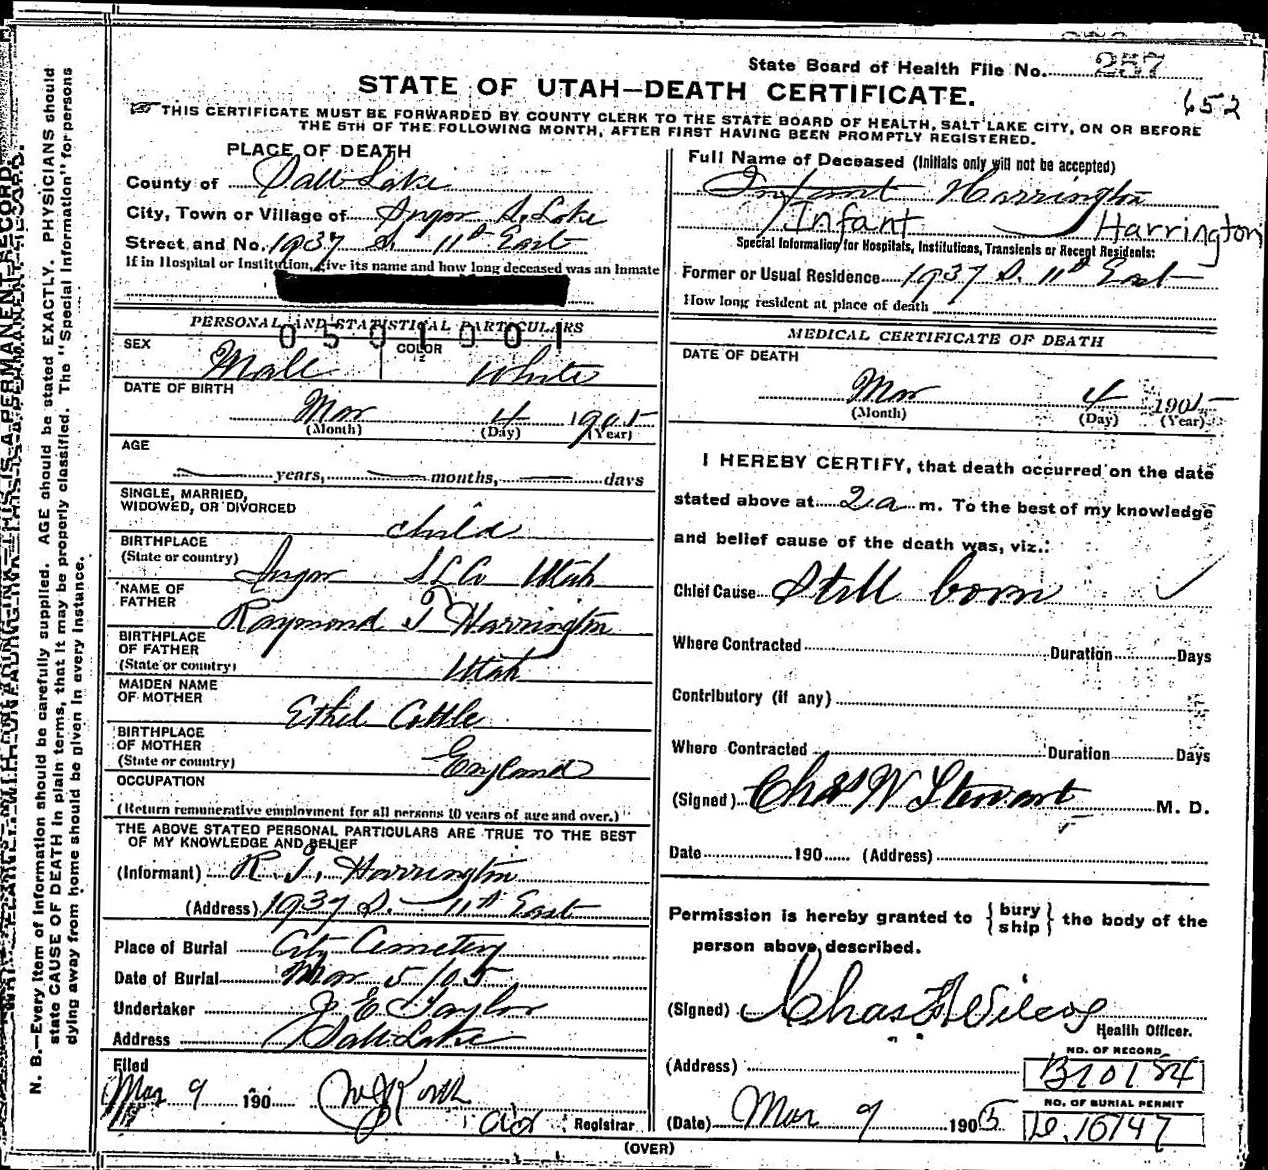 State Board of Health File No. 257
652
STATE OF UTAH—DEATH CERTIFICATE.
THIS CERTIFICATE MUST BE FORWARDED BY COUNTY CLERK TO THE STATE BOARD OF HEALTH, SALT LAKE CITY, ON OR BEFORE
THE 5TH OF THE FOLLOWING MONTH, AFTER FIRST HAVING BEEN PROMPTLY REGISTERED.
PLACE OF DEATH
County of Salt Lake
City, Town or Village of Sugar S. Lake
Street and No. 1937 S. 11th East
If in Hospital or Institution, give its name and how long deceased was an Inmate
PERSONAL AND STATISTICAL PARTICULARS
0501001
SEX Male
COLOR White
DATE OF BIRTH
Mar 4 1905
(Month) (Day) (Year)
AGE
years, months, days
SINGLE, MARRIED,
WIDOWED, OR DIVORCED
child
BIRTHPLACE
(State or country) Sugar S L Co Utah
NAME OF
FATHER Raymond T Harrington
BIRTHPLACE
OF FATHER
(State or country) Utah
MAIDEN NAME
OF MOTHER Ethel Cottle
BIRTHPLACE
OF MOTHER
(State or country) England
OCCUPATION
(Return remunerative employment for all persons 10 years of age and over.)
THE ABOVE STATED PERSONAL PARTICULARS ARE TRUE TO THE BEST
OF MY KNOWLEDGE AND BELIEF
(Informant) R. T. Harrington
(Address) 1937 S. 11th East
Place of Burial City Cemetery
Date of Burial Mar 5/05
Undertaker J E Taylor
Address Salt Lake
Filed
Mar 9 190
Registrar
Full Name of Deceased (Initials only will not be accepted)
Infant Harrington
Infant Harrington
Special Information for Hospitals, Institutions, Transients or Recent Residents:
Former or Usual Residence 1937 S. 11th East
How long resident at place of death
MEDICAL CERTIFICATE OF DEATH
DATE OF DEATH
Mar 4 1905
(Month) (Day) (Year)
I HEREBY CERTIFY, that death occurred on the date
stated above at 2 a m. To the best of my knowledge
and belief cause of the death was, viz.:
Chief Cause Still born
Where Contracted Duration Days
Contributory (if any)
Where Contracted Duration Days
(Signed) Chas W Stewart M. D.
Date 190 (Address)
Permission is hereby granted to {bury ship} the body of the
person above described.
(Signed) Chas F Wilcox
Health Officer.
(Address)
NO. OF RECORD
B10184
NO. OF BURIAL PERMIT
D.16747
(Date) Mar 9 1905
(OVER)
N. B.—Every item of information should be carefully supplied. AGE should be stated EXACTLY. PHYSICIANS should
state CAUSE OF DEATH in plain terms, that it may be properly classified. The "Special Information" for persons
dying away from home should be given in every instance.